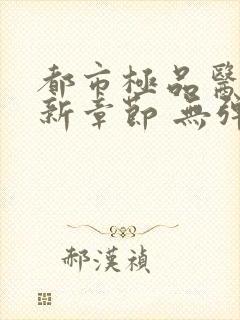 都市極品醫
新章節 無彈
郝漢禎